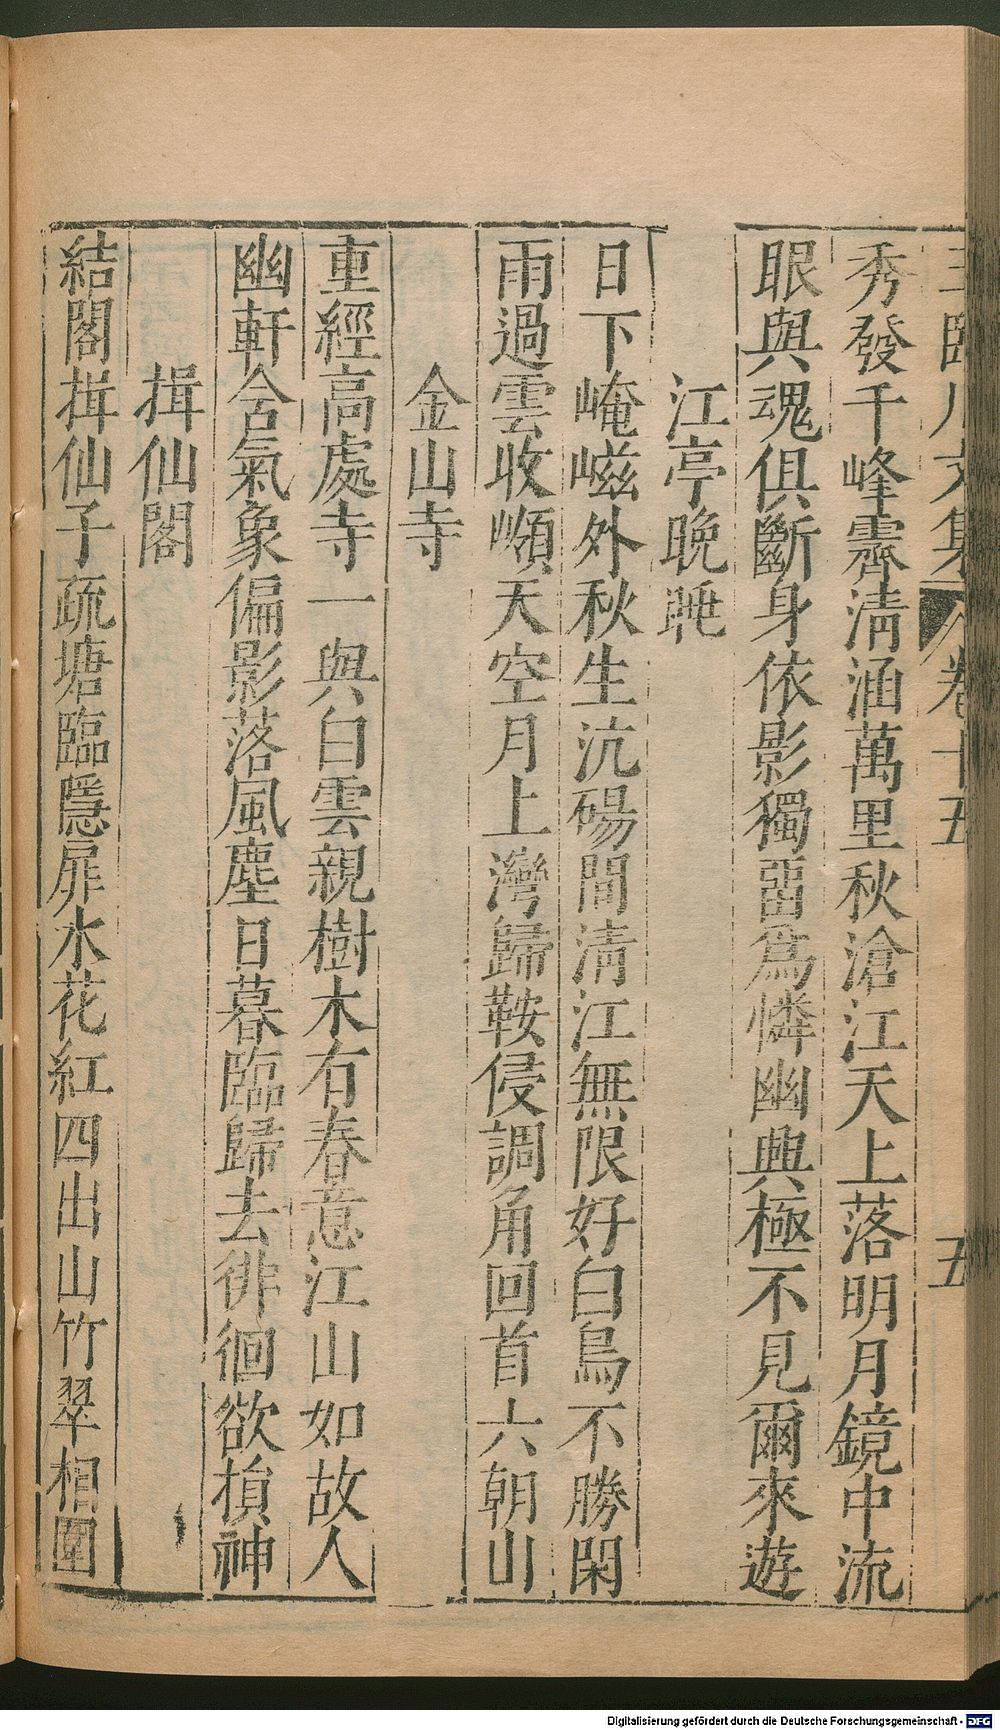 王臨川文集 卷十五 五
秀發千峰霽清涵萬里秋滄江天上落明月鏡中流
眼與魂俱斷身依影獨留爲憐幽興極不見爾來遊
江亭晚眺
日下崦嵫外秋生沆碭間清江無限好白鳥不勝閑
雨過雲收嶺天空月上灣歸鞍侵調角回首六朝山
金山寺
重經高處寺一與白雲親樹木有春意江山如故人
幽軒含氣象偏影落風塵日暮臨歸去徘徊欲損神
揖仙閣
結閣揖仙子疏塘臨隱扉水花紅四出山竹翠相圍
Digitalisierung gefördert durch die Deutsche Forschungsgemeinschaft - DFG